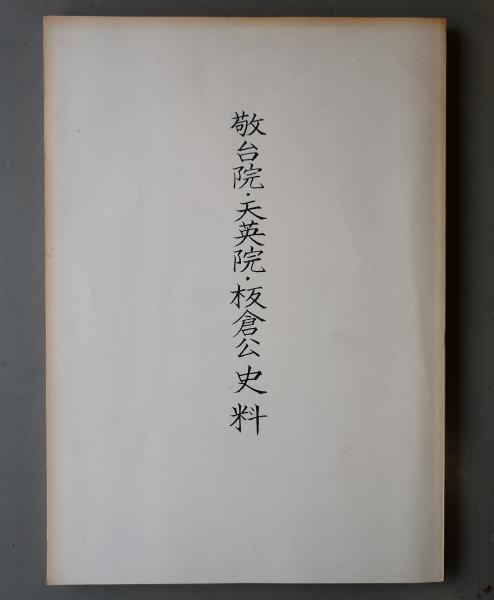 敬台院・天英院・板倉公史料